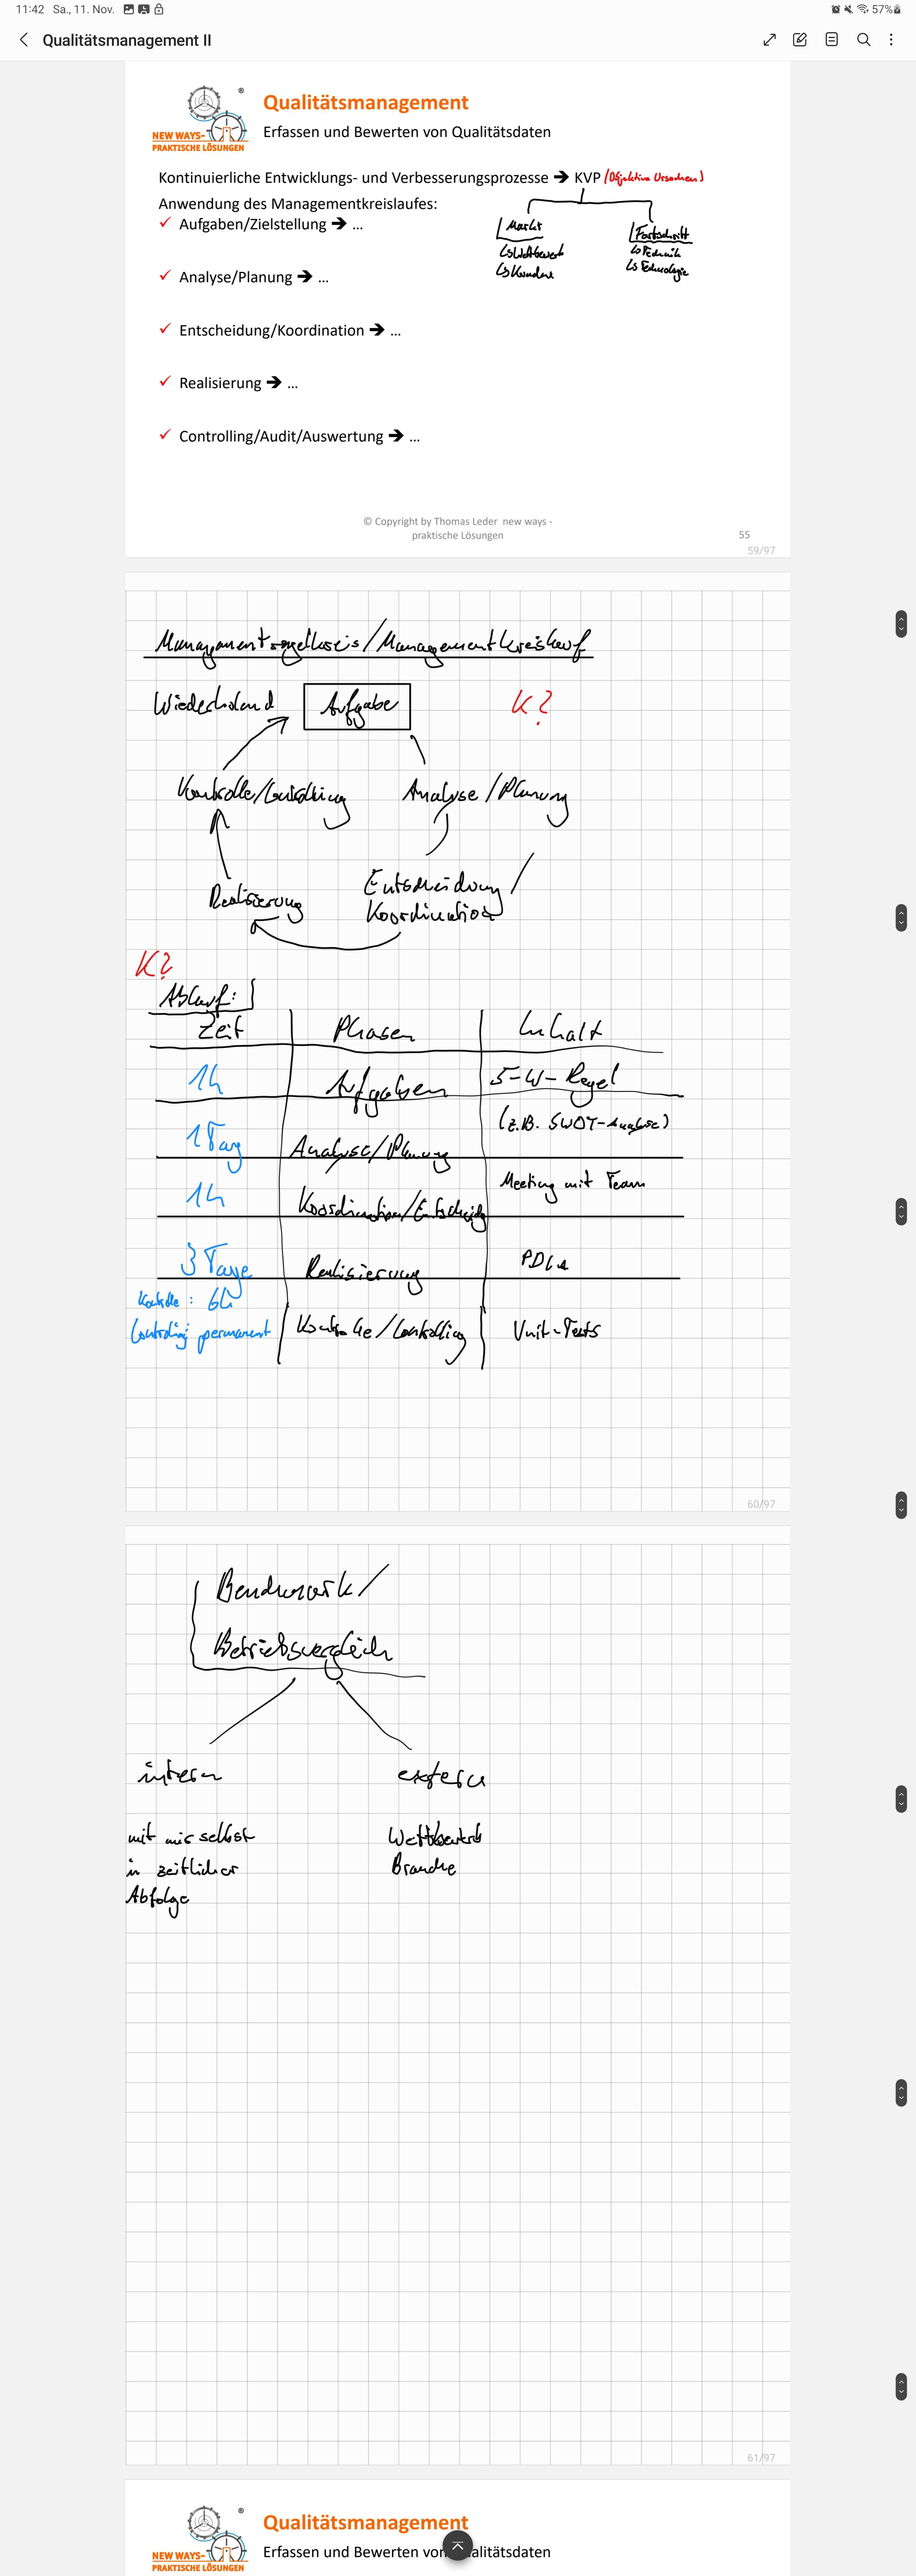 11:42 Sa., 11. Nov. 57%
Qualitätsmanagement II
®
NEW WAYS-
PRAKTISCHE LÖSUNGEN
Qualitätsmanagement
Erfassen und Bewerten von Qualitätsdaten
Kontinuierliche Entwicklungs- und Verbesserungsprozesse ➔ KVP (Objektive Ursachen)
Anwendung des Managementkreislaufes:
✓ Aufgaben/Zielstellung ➔ ...
Markt
↳ Wettbewerb
↳ Kunden
Fortschritt
↳ Technik
↳ Technologie
✓ Analyse/Planung ➔ ...
✓ Entscheidung/Koordination ➔ ...
✓ Realisierung ➔ ...
✓ Controlling/Audit/Auswertung ➔ ...
© Copyright by Thomas Leder new ways -
praktische Lösungen
55
59/97
Managementregelkreis/Managementkreislauf
Wiederholend Aufgabe K?
Kontrolle/Controlling Analyse/Planung
Realisierung Entscheidung/
Koordination
K?
Ablauf:
Zeit Phasen Inhalt
1h Aufgaben 5-W-Regel
1 Tag Analyse/Planung (z.B. SWOT-Analyse)
1h Koordination/Entscheidg Meeting mit Team
3 Tage Realisierung PDCA
Kontrolle: 6h
Controlling permanent Kontrolle/Controlling Unit-Tests
60/97
Benchmark/
Betriebsvergleich
intern extern
mit mir selbst
in zeitlicher
Abfolge
Wettbewerb
Branche
61/97
®
NEW WAYS-
PRAKTISCHE LÖSUNGEN
Qualitätsmanagement
Erfassen und Bewerten von alitätsdaten